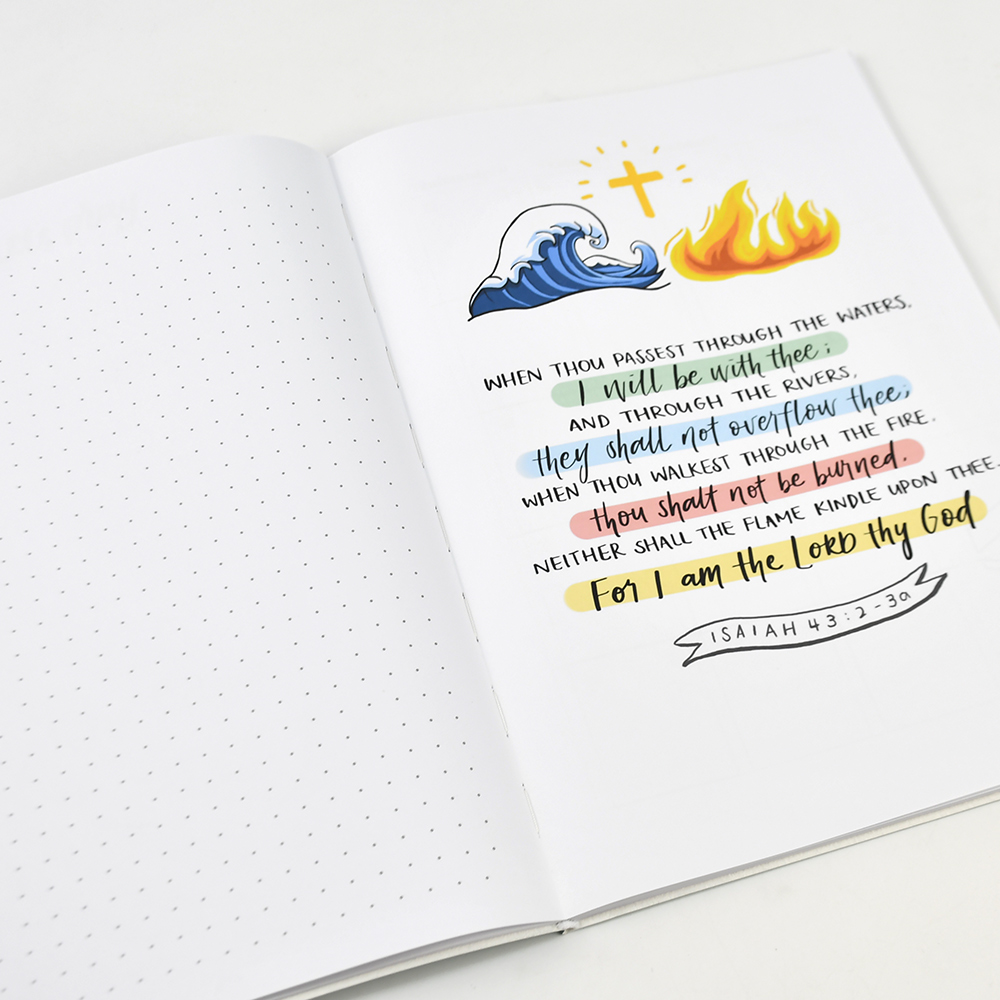 WHEN THOU PASSEST THROUGH THE WATERS,
I will be with thee;
AND THROUGH THE RIVERS,
they shall not overflow thee;
WHEN THOU WALKEST THROUGH THE FIRE,
thou shalt not be burned.
NEITHER SHALL THE FLAME KINDLE UPON THEE.
For I am the LORD thy God
ISAIAH 43:2-3a